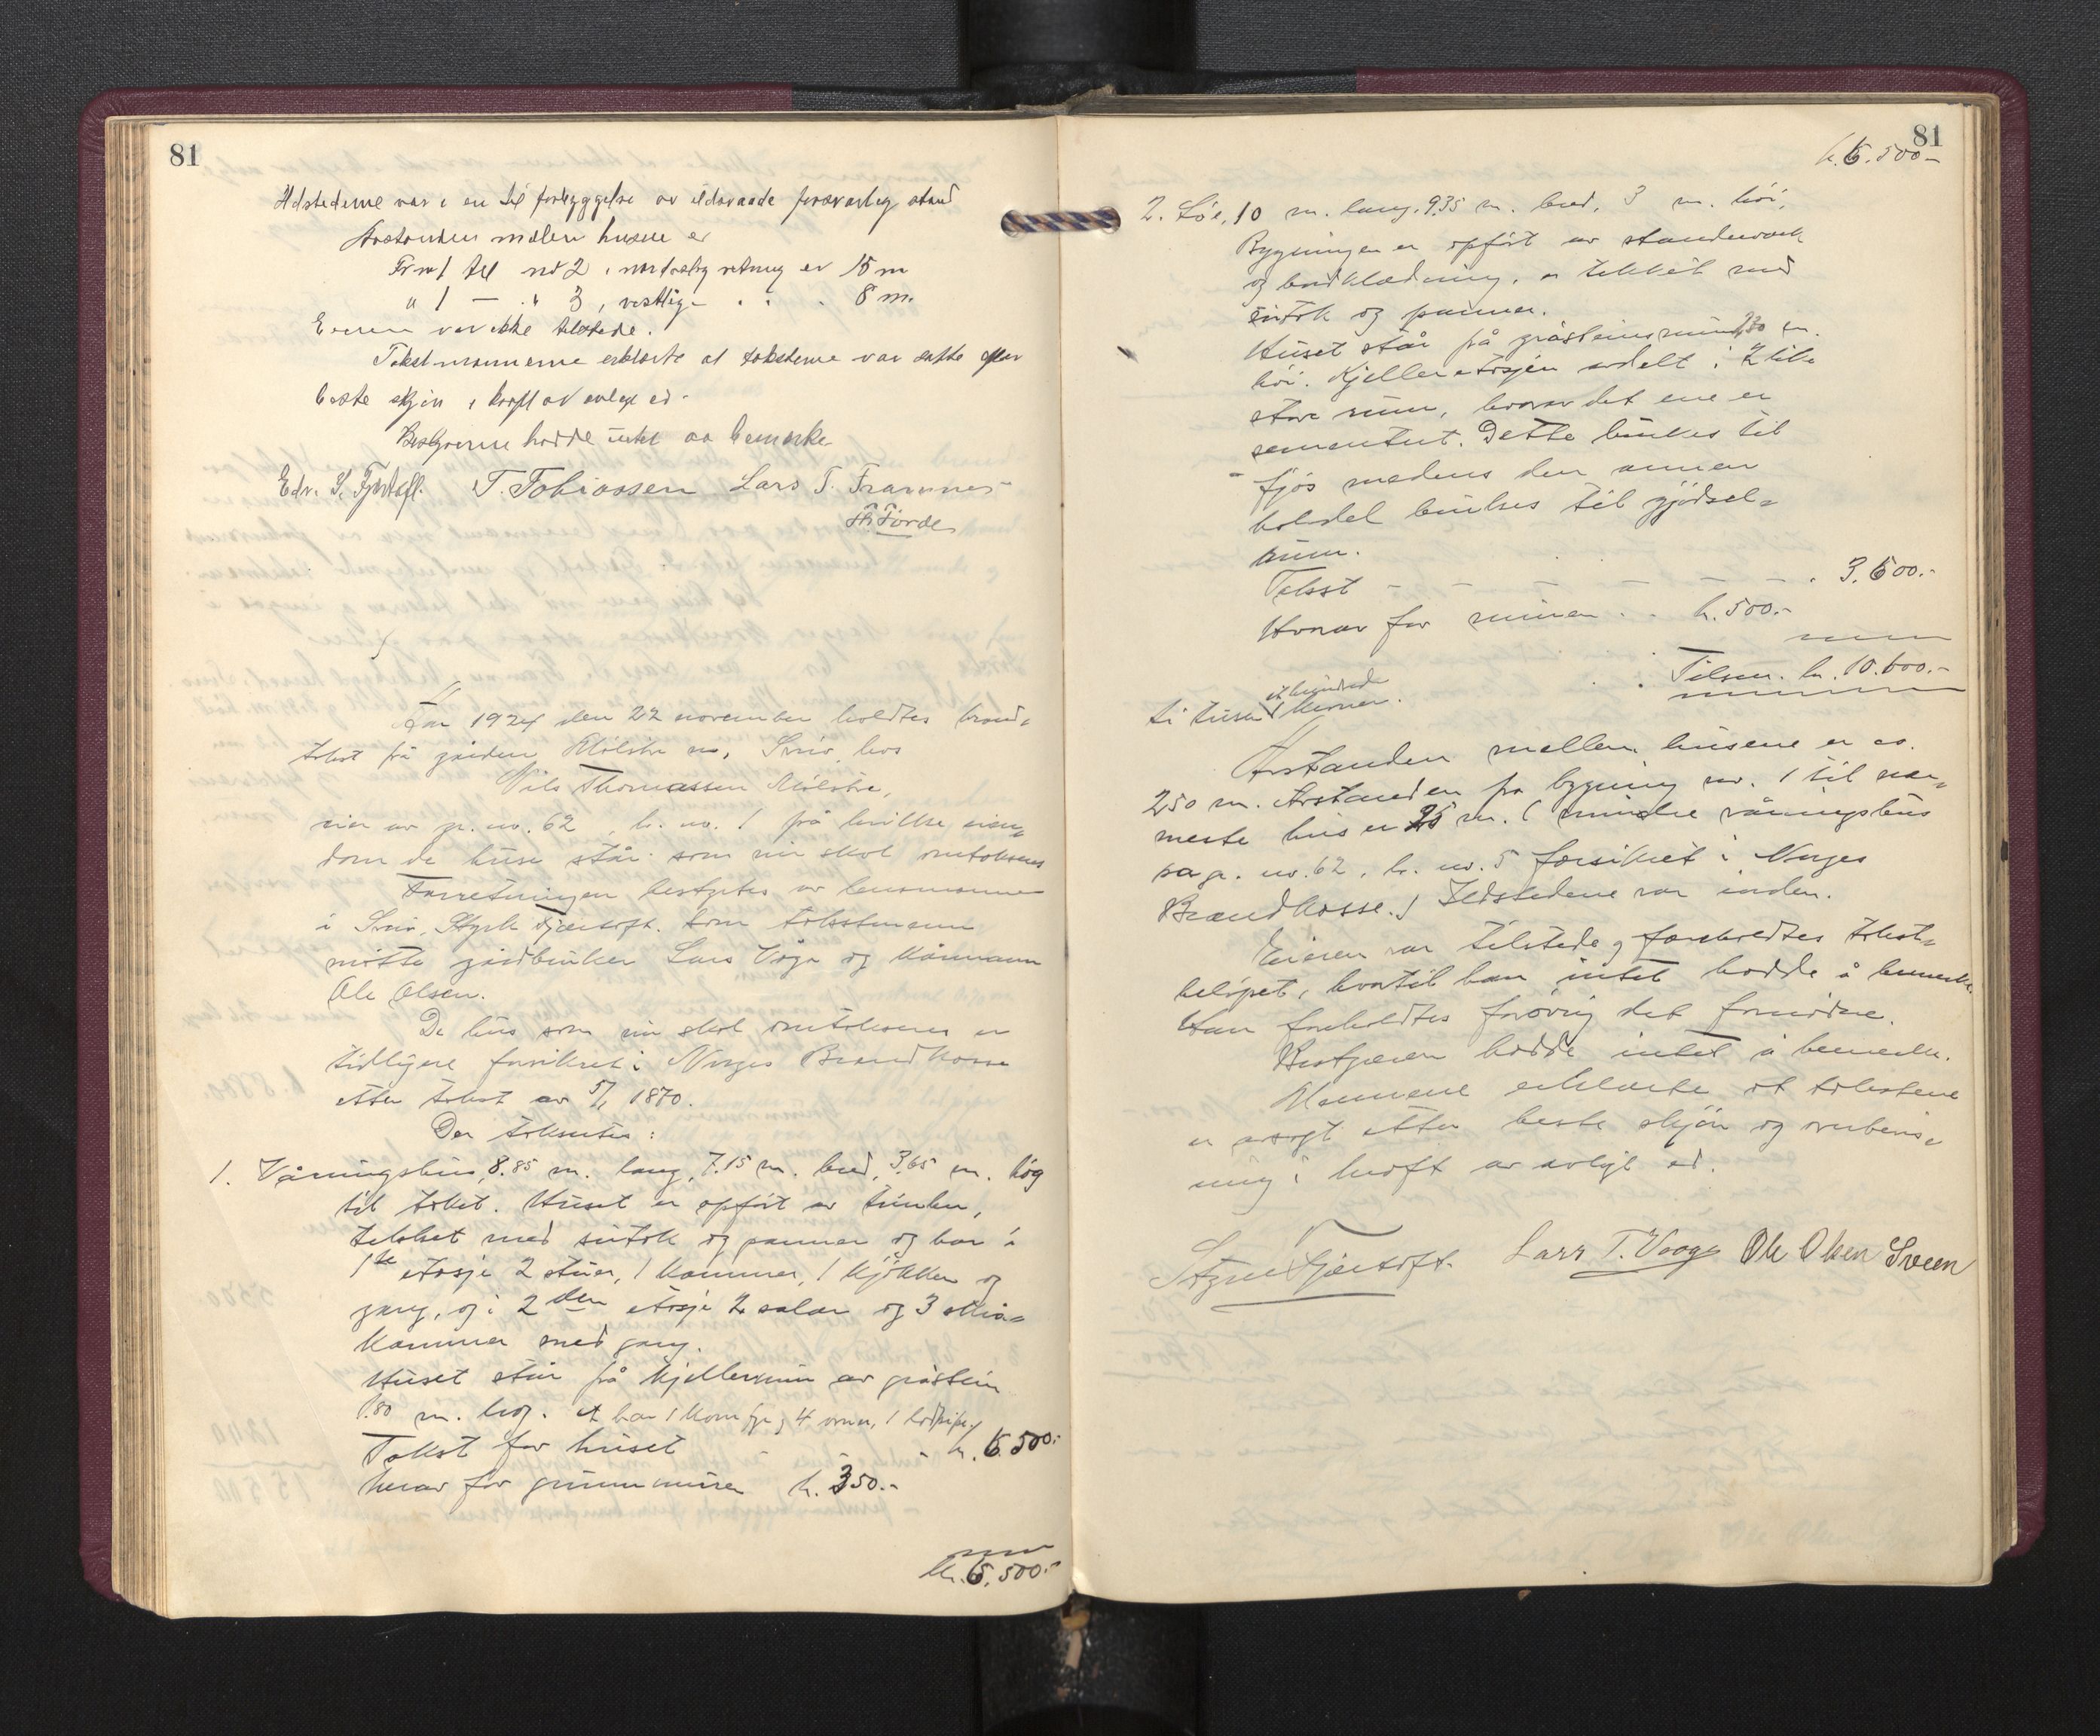 81
Ildstederne var i en til forebyggelse av ildsvaade forsvarlig stand
Avstanden mellem husene er
Fr nr 1 til nr 2 i nordostlig retning er 15 m
" 1 — " 3, vestlig " " " 8 m.
Eieren var ikke tilstede.
Takstmænnerne erklærte at taksterne var satte efter
beste skjøn i kraft av avlagt ed.
Bestyreren hadde intet aa bemerke
Edv. S. Fjørtoft. T. Tobiassen Lars T. Framnes
Th. Førde
År 1924 den 22 november holdtes brand-
takst på gården Mölstre m, Sveio, hos
Nils Thomassen Mölstre,
eier av gr. no. 62, br. no. 1 på hvilke eien-
dom de huse står som nu skal omtakseres
Forretningen bestyrtes av lensmannen
i Sveio, Fjærtoft. Som takstmenn
møtte gårdbruker Lars Våge og
Ole Olsen.
De hus som nu skal omtakseres er
tidligere forsikret i Norges Brandkasse
etter takst av 5/ 1870.
Der taksertes:
1. Våningshus, 8.85 m. lang, 7.15 m. bred, 3.65 m. høg
til taket. Huset er opført av tømber,
tekket med sutak og panner og har i
1ste etasje 2 stuer, 1 kammer, 1 kjøkken og
gang, og i 2den etasje 2 salar og 3 små-
kammer med gang.
Huset står på kjellermur av gråstein
1.80 m. høg. et har 1 komfyr, 4 ovner, 1
Takst for huset - - kr. 6.500.-
herav for grunnmuren kr. 350.-
kr. 6.500.-
81
kr. 6.500-
2. Løe, 10 m. lang, 9.35 m. bred, 3 m. høi,
Bygningen er opført av standerverk
og bordklædning, er tekket med
sutak og panner.
Huset står på gråsteinsmur, m.
høi. Kjelleretasjen avdelt i 2 like
store rum, hvorav det ene er
sementert. Dette brukes til
fjøs medens den annen
halvdel brukes til gjødsel-
rum.
Takst - - - - - - 3.600.-
Hvorav for muren . . kr. 500.-
Tilsm. kr. 10.100.-
ti tusen et hundrede kroner.
Avstanden mellem husene er ca.
250 m. Avstanden fra bygning nr. 1 til nær-
meste hus er 25 m. (mindre våningshus
på gr. no. 62, br. no. 5 forsikret i Norges
Brandkasse.) Ildstedene var i orden.
Eieren var tilstede og foreholdtes takst-
beløpet, hvortil han intet hadde å bemerke.
Han foreholdtes forøvrig det fornødne.
Bestyreren hadde intet å bemerke.
Mennene erklærte at takstene
er avsagt etter beste skjøn og overbevis-
ning i kraft av avlagt ed.
Fjærtoft. Lars T. Vaage Ole Olsen Sveen